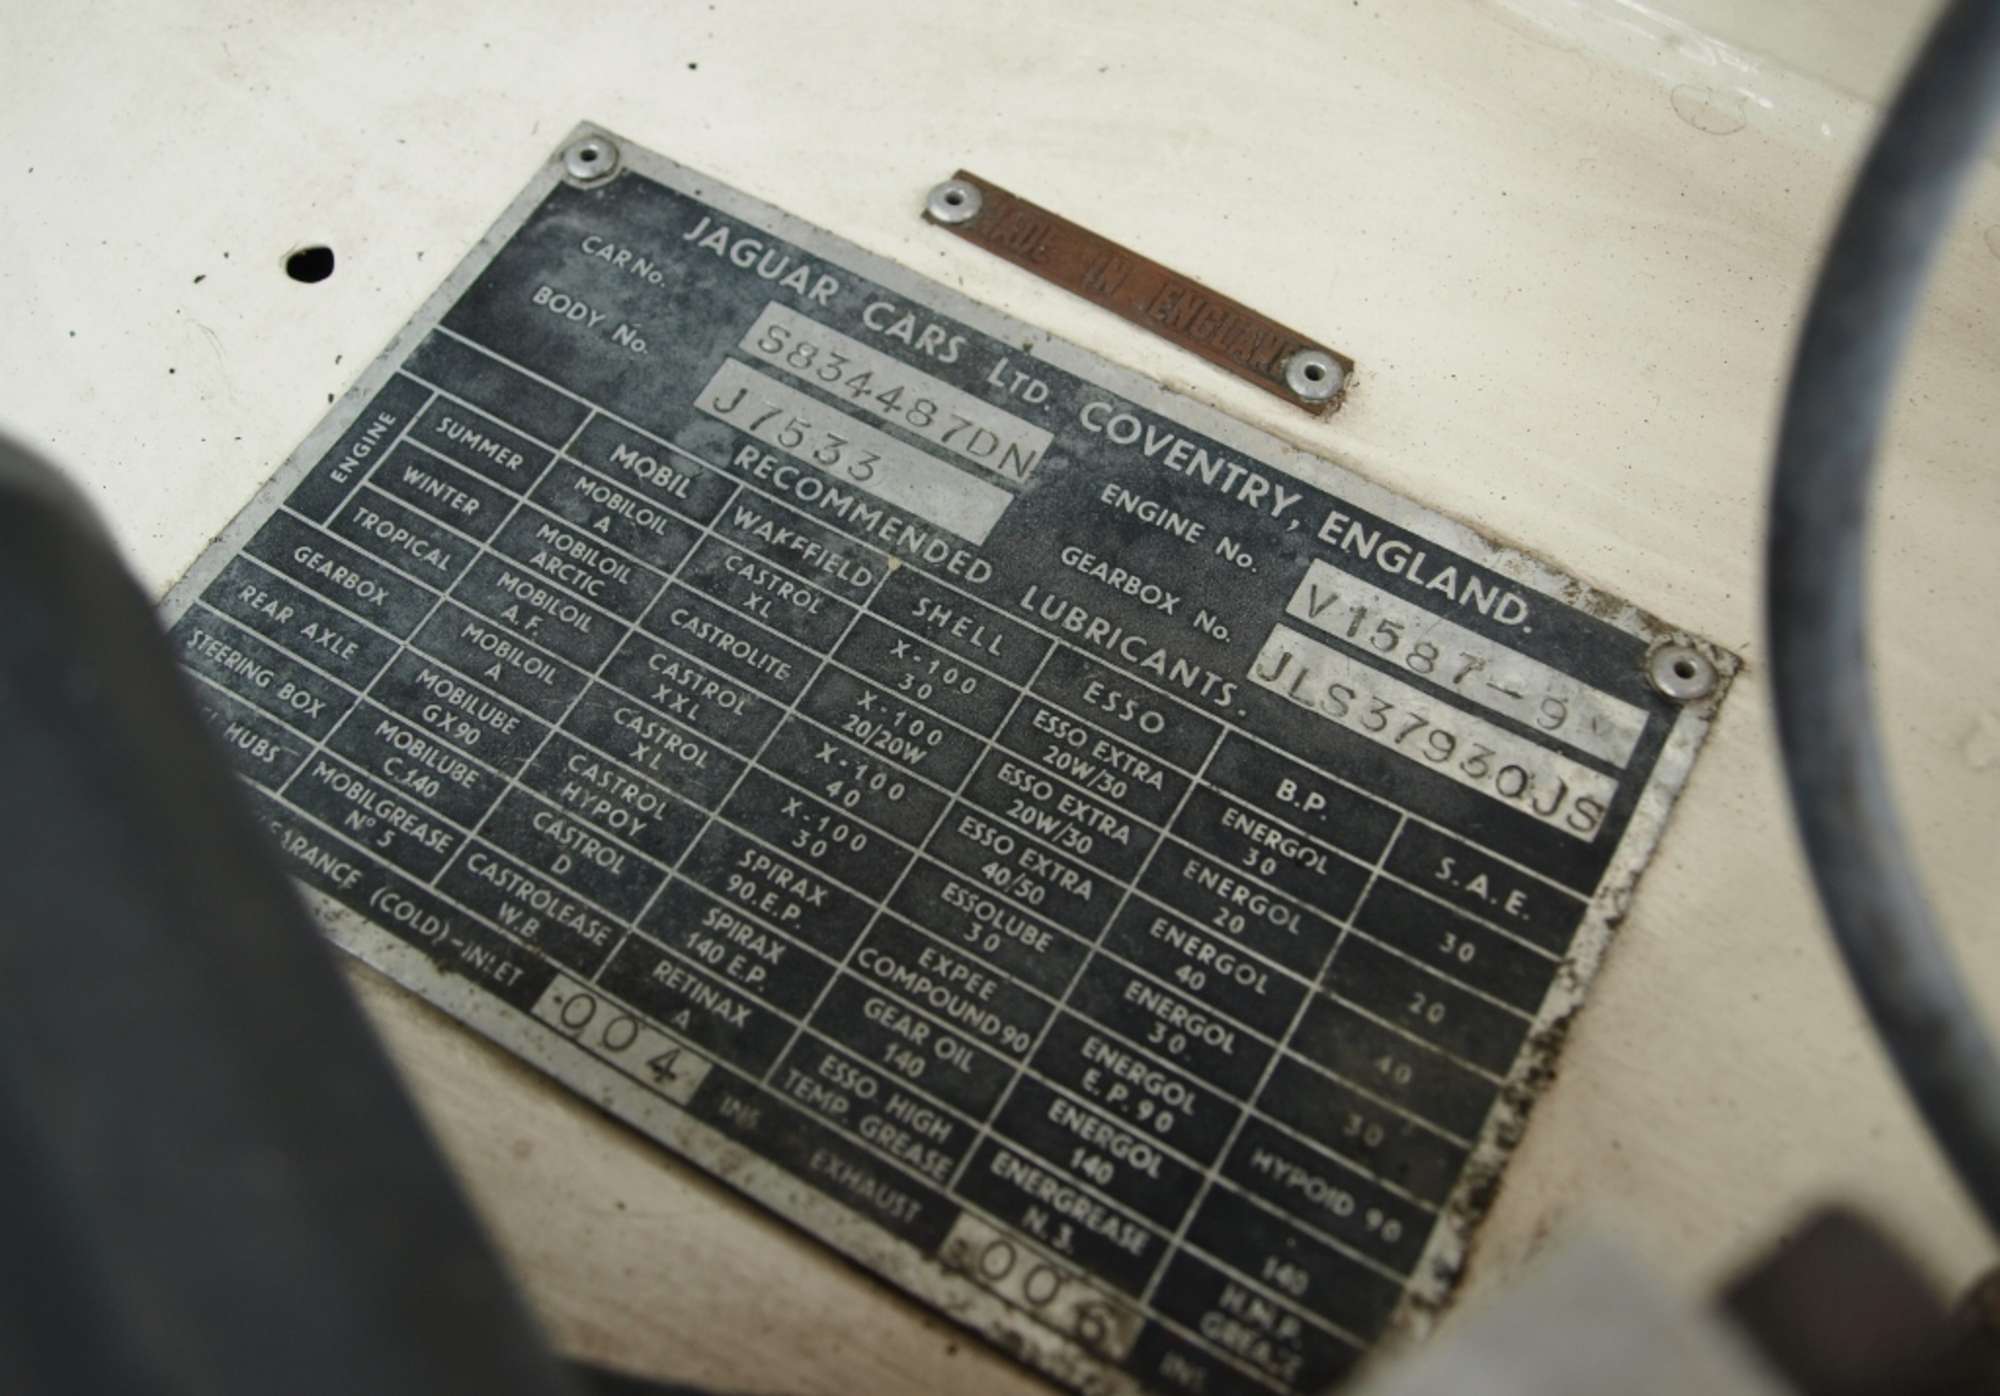 MADE IN ENGLAND
JAGUAR CARS LTD. COVENTRY, ENGLAND.
CAR No. S834487DN ENGINE No. V1587-9
BODY No. J7533 GEARBOX No. JLS37930JS
RECOMMENDED LUBRICANTS.
MOBIL WAKEFIELD SHELL ESSO B.P. S.A.E.
ENGINE
SUMMER MOBILOIL A CASTROL XL X-100 30 ESSO EXTRA 20W/30 ENERGOL 30 30
WINTER MOBILOIL ARCTIC CASTROLITE X-100 20/20W ESSO EXTRA 20W/30 ENERGOL 20 20
TROPICAL MOBILOIL A.F. CASTROL XXL X-100 40 ESSO EXTRA 40/50 ENERGOL 40 40
GEARBOX MOBILOIL A CASTROL XL X-100 30 ESSOLUBE 30 ENERGOL 30 30
REAR AXLE MOBILUBE GX90 CASTROL HYPOY SPIRAX 90.E.P. EXPEE COMPOUND 90 ENERGOL E.P.90 HYPOID 90
STEERING BOX MOBILUBE C.140 CASTROL D SPIRAX 140 E.P. GEAR OIL 140 ENERGOL 140 140
HUBS MOBILGREASE Nº 5 CASTROLEASE W.B RETINAX A ESSO HIGH TEMP. GREASE ENERGREASE N.3. H.M.P. GREASE
(COLD)-INLET .004 INS. EXHAUST .006 INS.